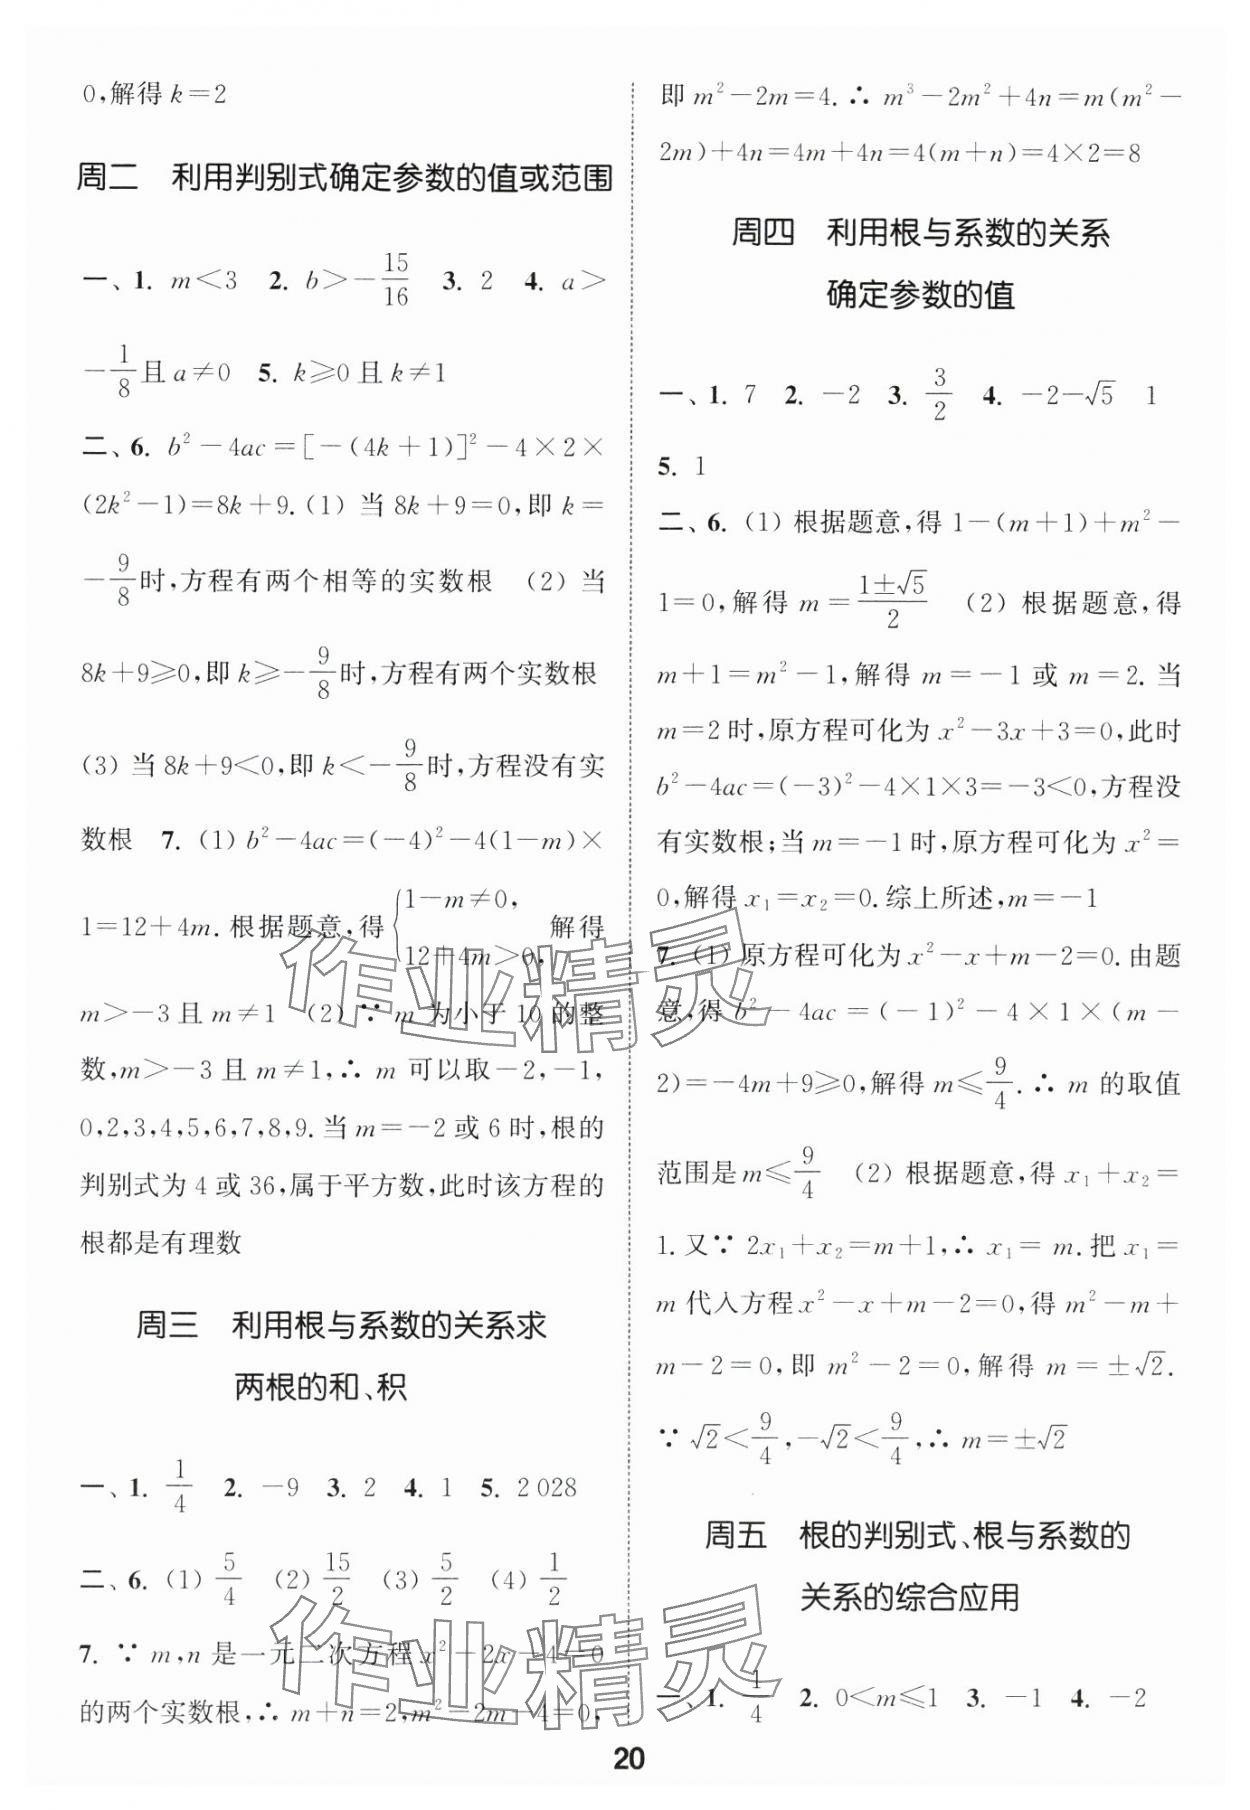 0,解得 k=2
周二　利用判别式确定参数的值或范围
一、1. m<3　2. b>-15/16　3. 2　4. a>
-1/8且 a≠0　5. k≥0 且 k≠1
二、6. b²-4ac=[-(4k+1)]²-4×2×
(2k²-1)=8k+9.(1) 当 8k+9=0,即 k=
-9/8时,方程有两个相等的实数根　(2) 当
8k+9≥0,即 k≥-9/8时,方程有两个实数根
(3) 当 8k+9<0,即 k<-9/8时,方程没有实
数根　7. (1) b²-4ac=(-4)²-4(1-m)×
1=12+4m. 根据题意,得{1-m≠0, 12+4m>0, 解得
m>-3 且 m≠1　(2) ∵ m 为小于 10 的整
数,m>-3 且 m≠1,∴ m 可以取-2,-1,
0,2,3,4,5,6,7,8,9. 当 m=-2 或 6 时,根的
判别式为 4 或 36,属于平方数,此时该方程的
根都是有理数
周三　利用根与系数的关系求
两根的和、积
一、1. 1/4　2. -9　3. 2　4. 1　5. 2 028
二、6. (1) 5/4　(2) 15/2　(3) 5/2　(4) 1/2
7. ∵ m,n 是一元二次方程 x²-2x-4=0
的两个实数根,∴ m+n=2,m²-2m-4=0,
即 m²-2m=4. ∴ m³-2m²+4n=m(m²-
2m)+4n=4m+4n=4(m+n)=4×2=8
周四　利用根与系数的关系
确定参数的值
一、1. 7　2. -2　3. 3/2　4. -2-√5　1
5. 1
二、6. (1) 根据题意,得 1-(m+1)+m²-
1=0,解得 m=(1±√5)/2　(2) 根据题意,得
m+1=m²-1,解得 m=-1 或 m=2. 当
m=2 时,原方程可化为 x²-3x+3=0,此时
b²-4ac=(-3)²-4×1×3=-3<0,方程没
有实数根;当 m=-1 时,原方程可化为 x²=
0,解得 x₁=x₂=0.综上所述,m=-1
7. (1) 原方程可化为 x²-x+m-2=0. 由题
意,得 b²-4ac=(-1)²-4×1×(m-
2)=-4m+9≥0,解得 m≤9/4. ∴ m 的取值
范围是 m≤9/4　(2) 根据题意,得 x₁+x₂=
1. 又∵ 2x₁+x₂=m+1,∴ x₁=m. 把 x₁=
m 代入方程 x²-x+m-2=0,得 m²-m+
m-2=0,即 m²-2=0,解得 m=±√2.
∵ √2<9/4,-√2<9/4,∴ m=±√2
周五　根的判别式、根与系数的
关系的综合应用
一、1. 1/4　2. 0<m≤1　3. -1　4. -2
20
作业精灵
作业精灵